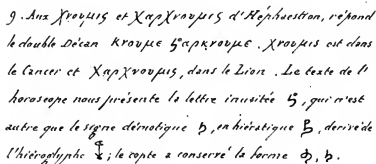 9. Aux Χνουμις et Χαρχνουμις d'Héphaestion, répond
le double Décan ΚΝΟΥΜΕ ϧαρκνουμε. Χνουμις est dans
le Cancer et Χαρχνουμις, dans le Lion. Le texte de l'
horoscope nous présente la lettre inusitée ϧ, qui n'est
autre que le signe démotique, en hiératique, derivé de
l'hiéroglyphe; le copte a conservé la forme